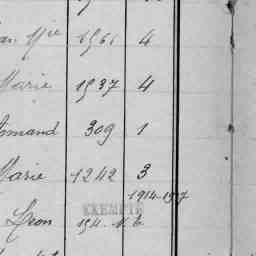 an Mie 1961 4
Marie 1937 4
rmand 309 1
Marie 1242 3
1914-1917
EXEMPTÉ
Léon 1911 N. b